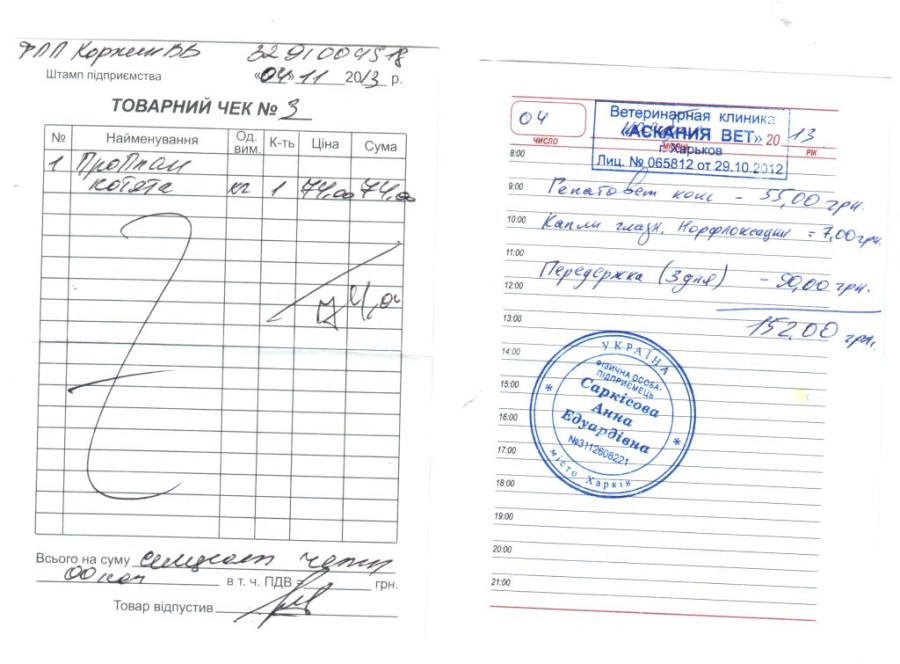 ФЛП Коржен ВВ 3291004518
Штамп підприємства «04» 11 2013 р.
ТОВАРНИЙ ЧЕК № 3
№ Найменування Од. вим. К-ть Ціна Сума
1 ПроПлан
котята кг 1 74,00 74,00
74,00
Всього на суму семдесят чотири
00 коп в т. ч. ПДВ = грн.
Товар відпустив
04
ЧИСЛО
МІСЯЦЬ
20 13
РІК
Ветеринарная клиника
«АСКАНИЯ ВЕТ»
г. Харьков
Лиц. № 065812 от 29.10.2012
8:00
9:00 Гепатовет конс – 55,00 грн.
10:00 Капли глазн. Норфлоксацин = 7,00 грн.
11:00
12:00 Передержка (3 дня) – 90,00 грн.
13:00 152,00 грн.
14:00
15:00
16:00
17:00
18:00
19:00
20:00
21:00
УКРАЇНА
ФІЗИЧНА ОСОБА-
ПІДПРИЄМЕЦЬ
Саркісова
Анна
Едуардівна
№3112608221
місто Харків